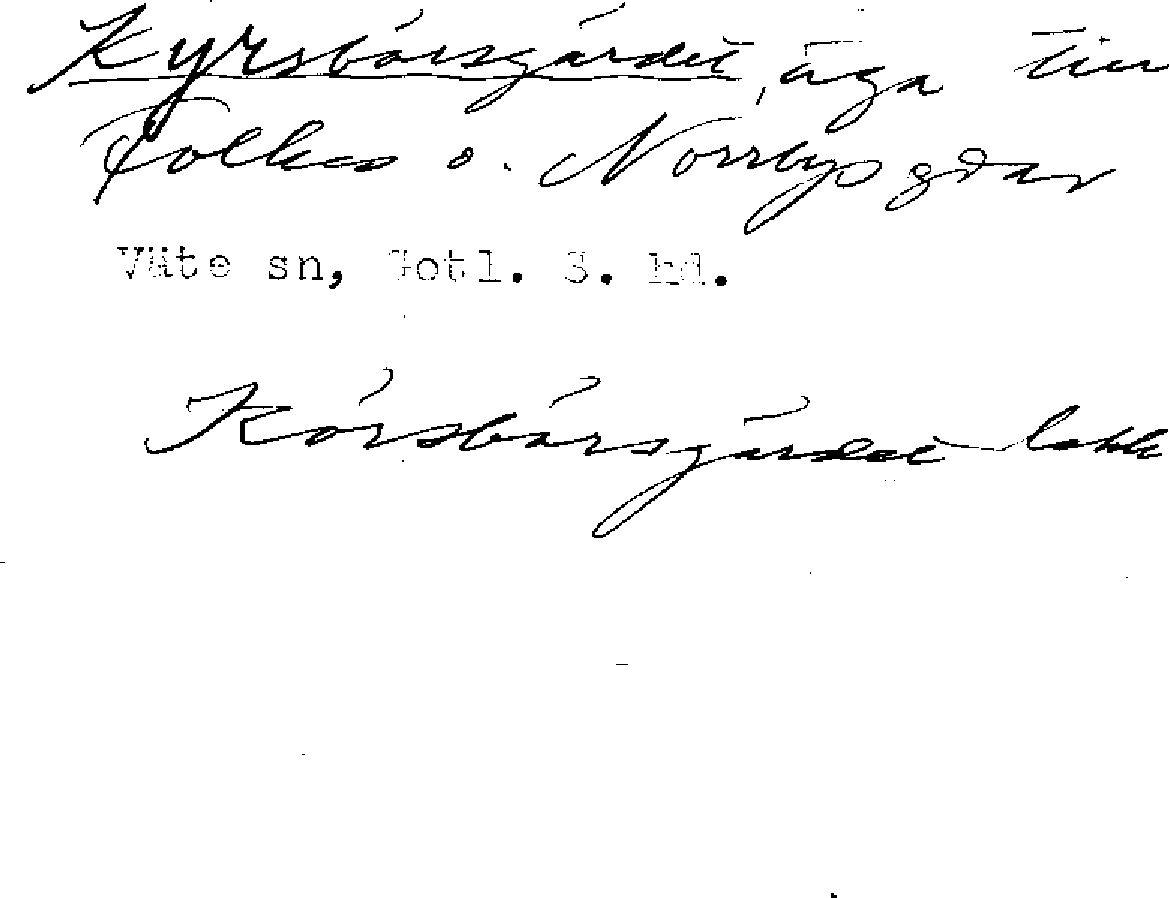 Kyrsbärsgärdet, äga till
Folkes o. Norrbys gdar
Väte sn, Gotl. S. hd.
Körsbärsgärdet